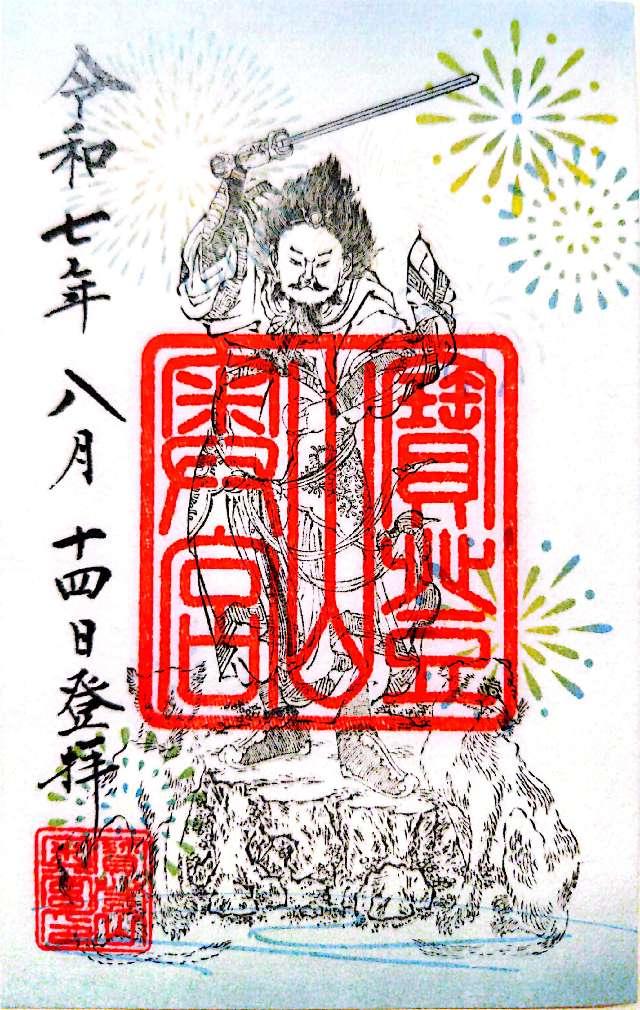 寶登
山
奥宮
令和七年八月十四日登拝